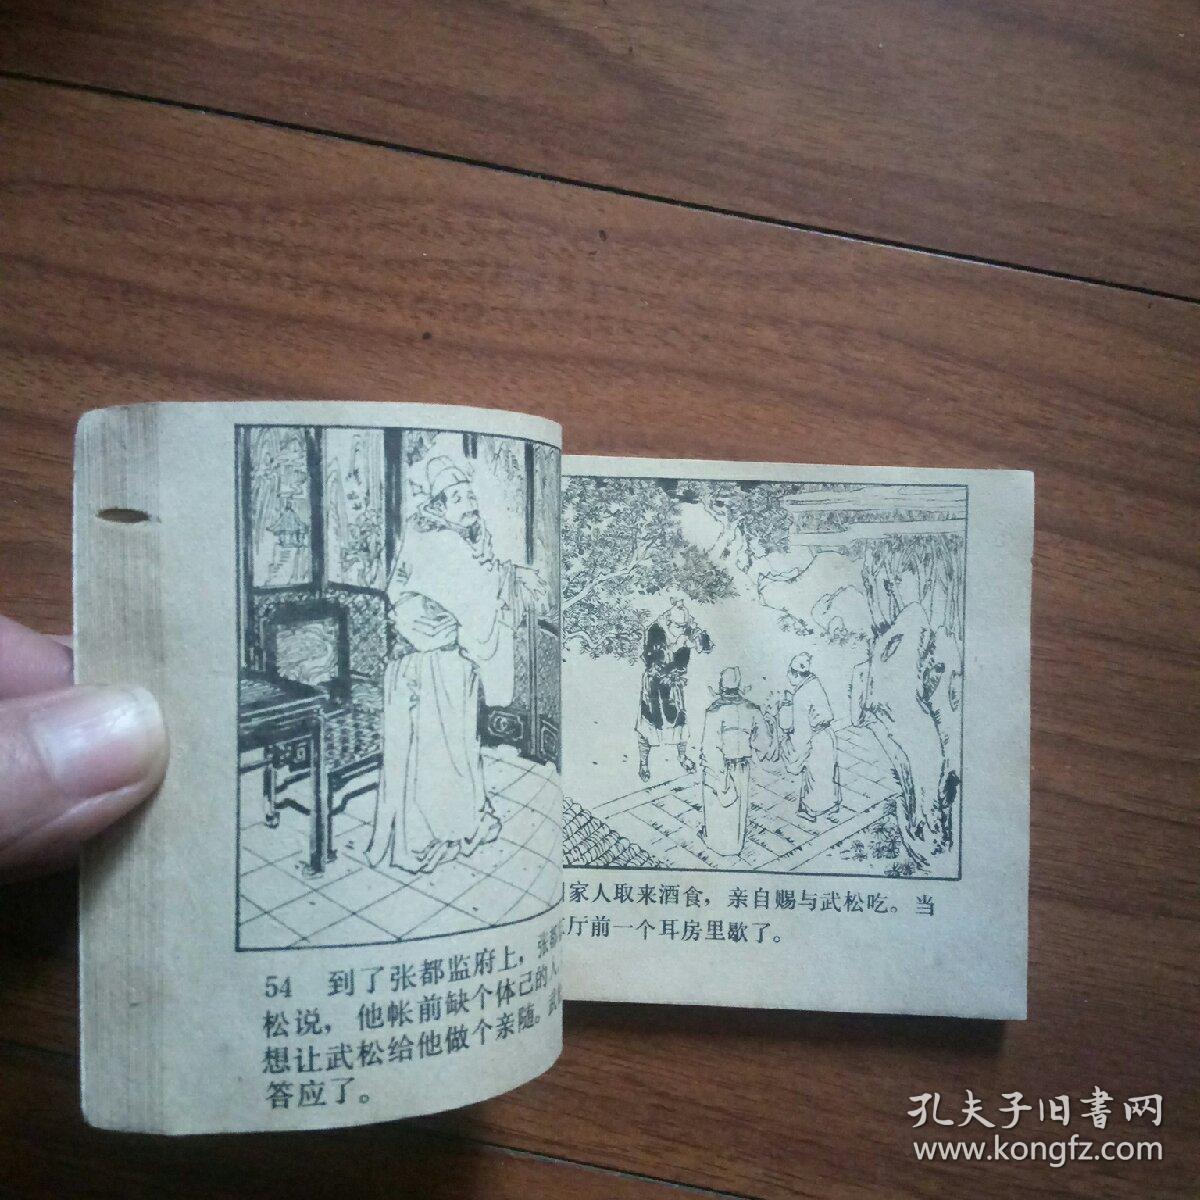 54 到了张都监府上，张都
松说，他帐前缺个体己的人
想让武松给他做个亲随。武
答应了。
家人取来酒食，亲自赐与武松吃。当
厅前一个耳房里歇了。
孔夫子旧書网
www.kongfz.com